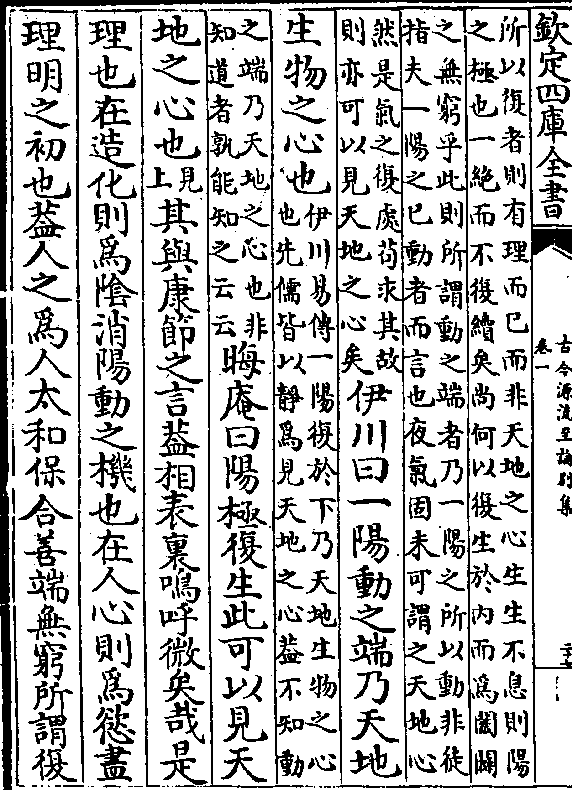 欽定四庫全書
古今源流至論別集
卷一
所以復者則有理而已而非天地之心生生不息則陽
之極也一絶而不復續矣尚何以復生於内而為闔闢
之無窮乎此則所謂動之端者乃一陽之所以動非徒
指夫一陽之已動者而言也夜氣固未可謂之天地心
然是氣之復處苟求其故
則亦可以見天地之心矣
伊川曰一陽動之端乃天地
生物之心也
伊川易傳一陽復於下乃天地生物之心
也先儒皆以靜為見天地之心葢不知動
之端乃天地之心也非
知道者孰能知之云云
晦庵曰陽極復生此可以見天
地之心也
見
上
其與康節之言葢相表裏嗚呼微矣哉是
理也在造化則爲隂消陽動之機也在人心則爲慾盡
理明之初也葢人之爲人太和保合善端無窮所謂復